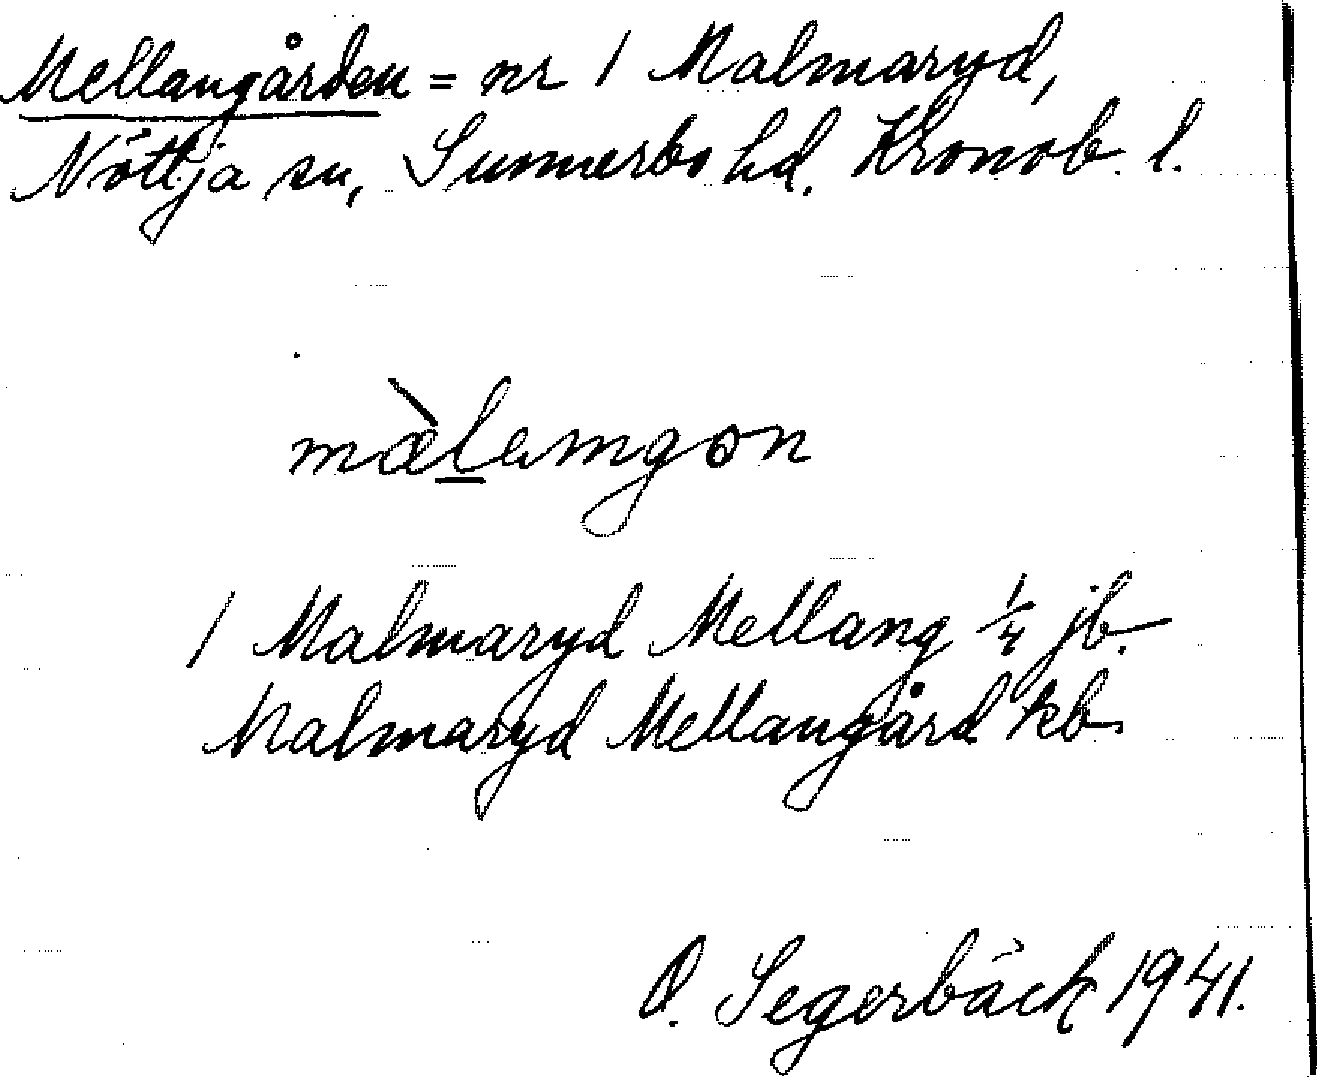 Mellangården = nr 1 Malmaryd,
Nöttja sn, Sunnerbo hd. Kronob. l.
mæ̀l̲amgɔn
1 Malmaryd Mellang 1/4 jb.
Malmaryd Mellangård kb.
O. Segerbäck 1941.